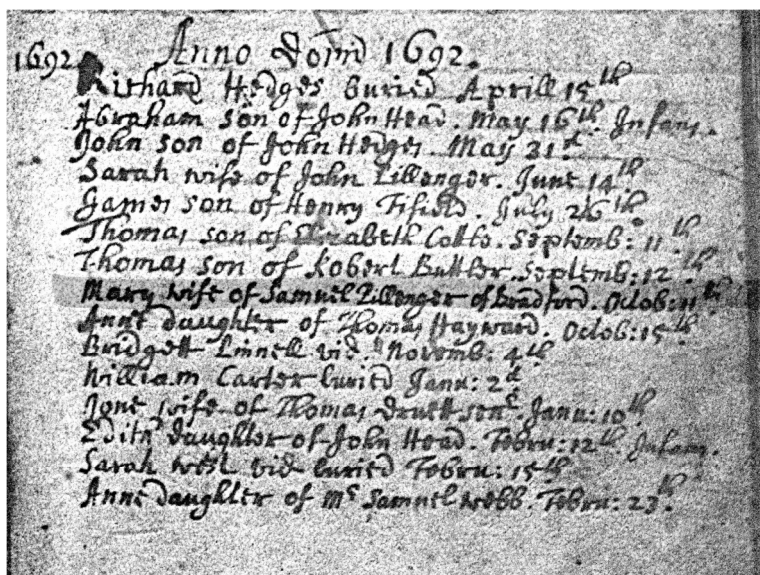 1692 Anno Domi 1692.
Richard Hedges buried Aprill 15th
Abraham son of John Head. May 16th Infans.
John son of John Hedges. May 21st
Sarah wife of John Zillenger. June 14th
James son of Henry Fifield. July 26th
Thomas son of Elizabeth Cotte. Septemb: 11th
Thomas son of Robert Buttler. Septemb: 12th
Mary wife of Samuel Zillenger of Bradford. Octob: 11th
Anne daughter of Thomas Hayward. Octob: 15th
Bridgett Linnell vid. Novemb: 4th
William Carter buried Janu: 2d
Jone wife of Thomas Druett senr. Janu: 10th
Edith daughter of John Head. Febru: 12th Infans.
Sarah West vid buried Febru: 15th
Anne daughter of Mr Samuel Webb. Febru: 23th